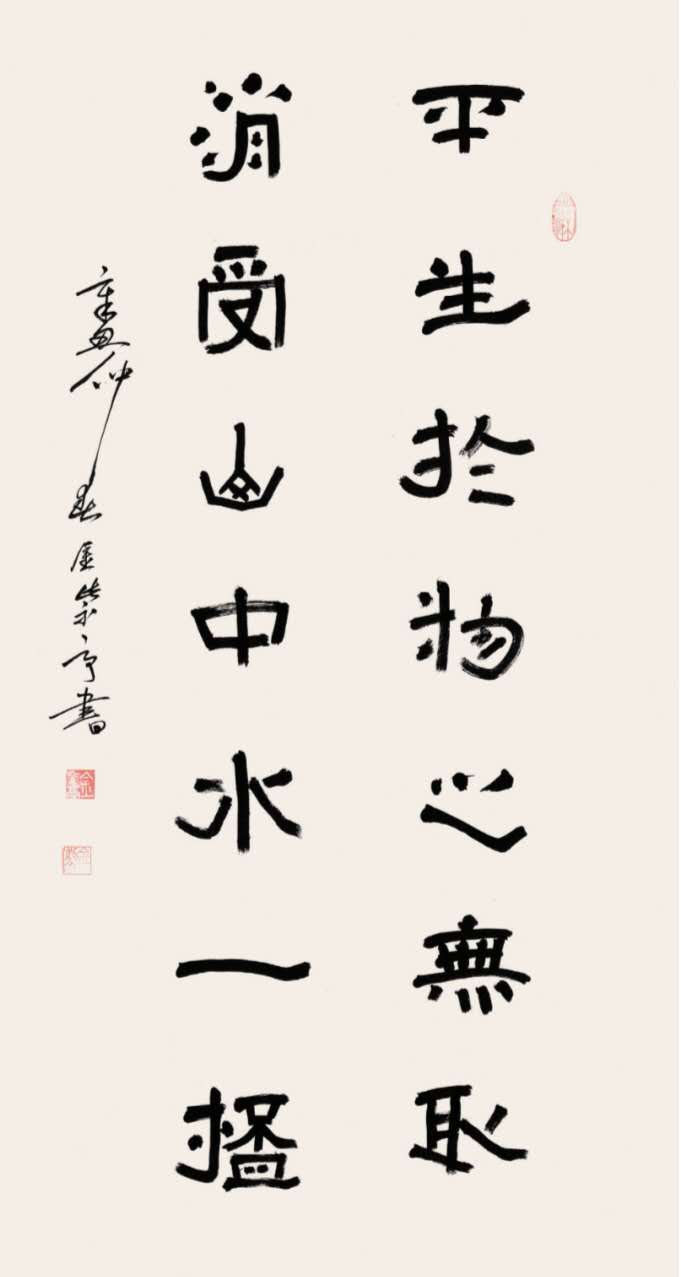 平生於物之無取
消受山中水一盃
辛丑仲春 書